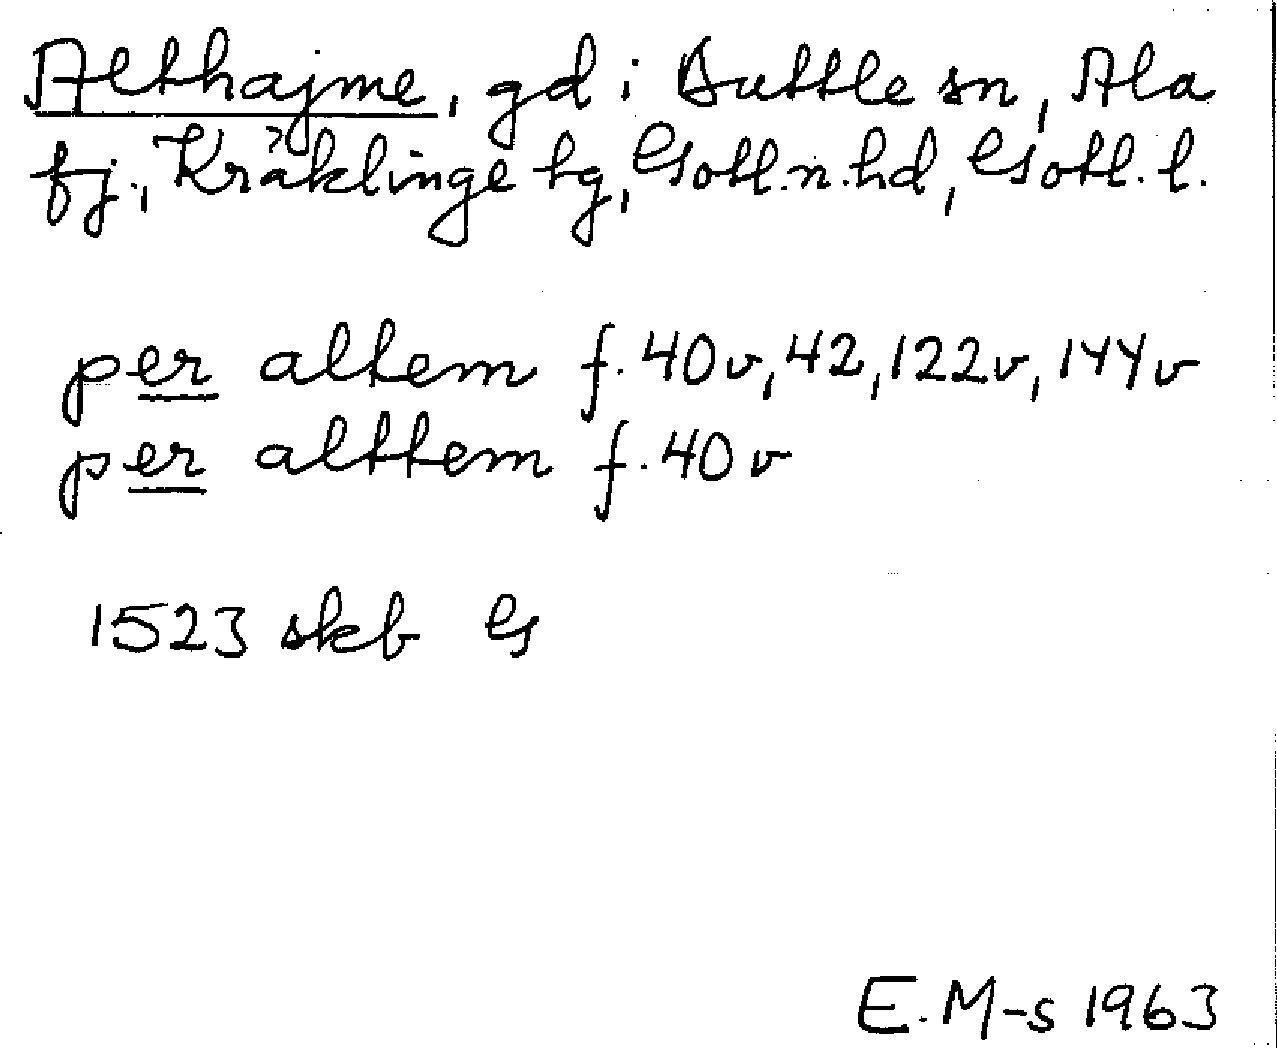 Althajme, gd i Buttle sn, Ala
fj., Kräklinge tg, Gotl. n. hd, Gotl. l.
per altem f. 40v, 42, 122v, 144v
per alttem f. 40v
1523 skb G
E. M-s 1963